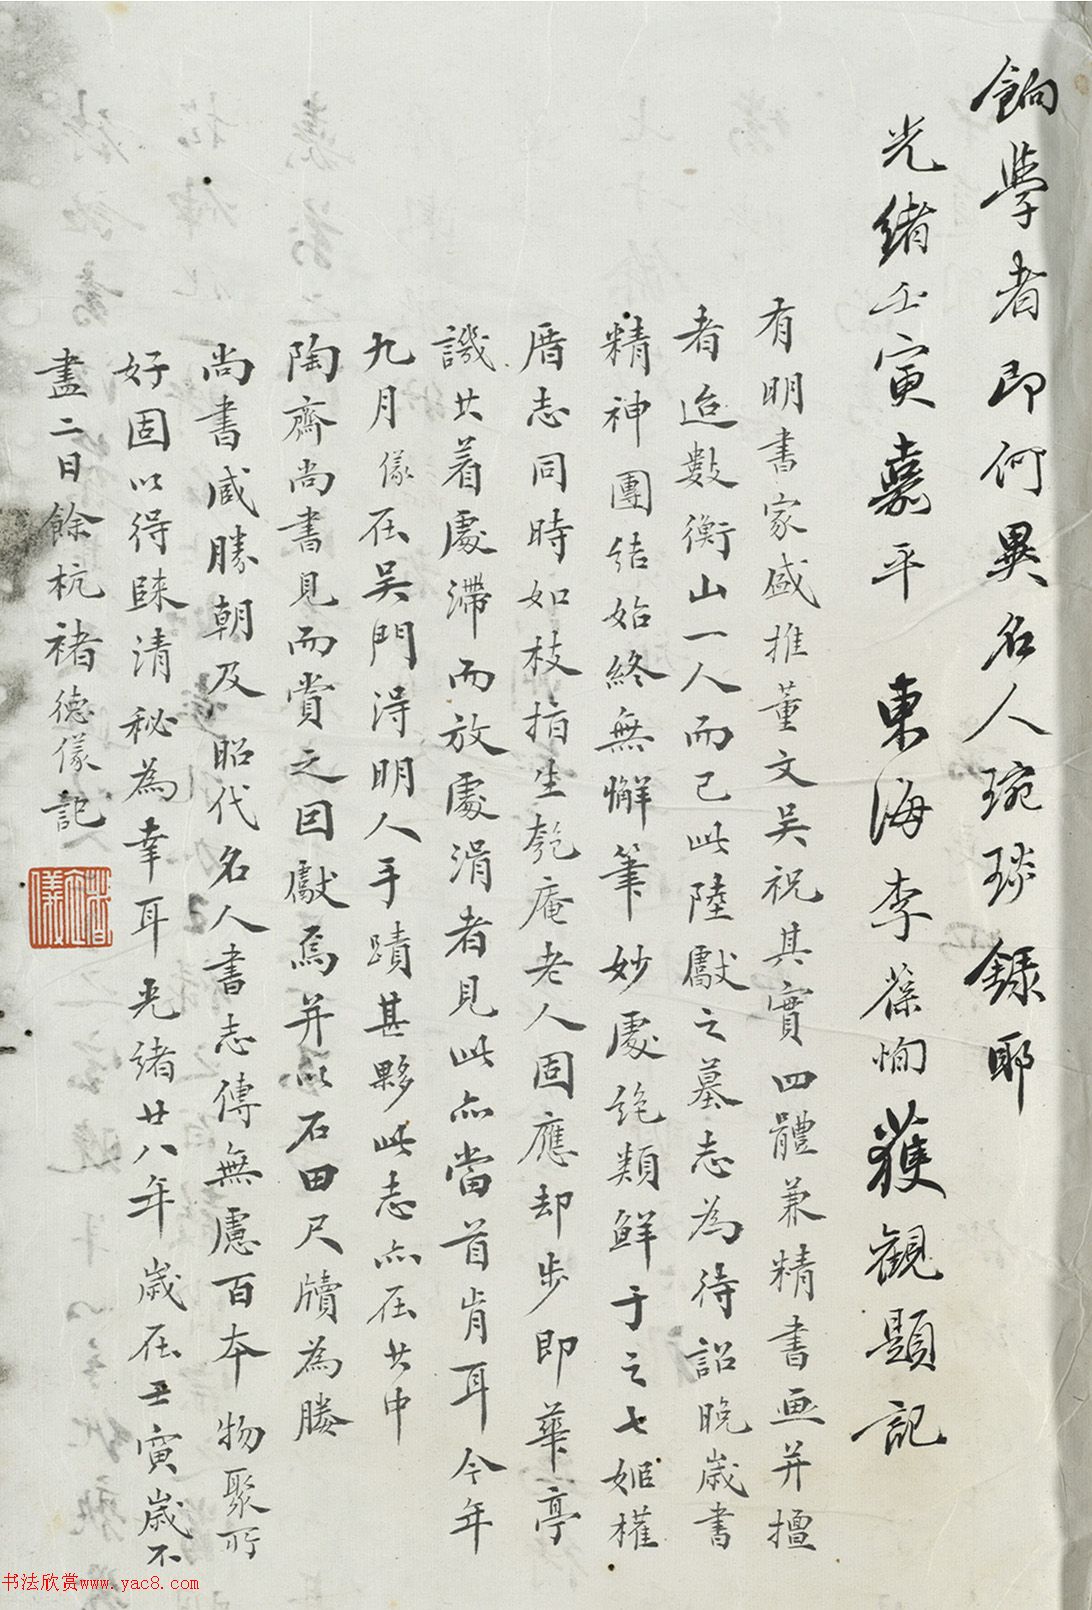 餉學者即何異名人琬琰錄耶
光緒壬寅嘉平 東海李葆恂獲觀題記
有明書家咸推董文吳祝其實四體兼精書画并擅
者迨數衡山一人而已此陸獻之墓志為待詔晚歲書
精神團結始終無懈筆妙處絶類鮮于之七姬權
厝志同時如枝指生匏庵老人固應却步即華亭
譏其着處滯而放處涓者見此亦當首肯耳今年
九月儀在吳門得明人手蹟甚夥此志亦在其中
陶齋尚書見而賞之因獻焉并以石田尺牘為媵
尚書咸勝朝及昭代名人書志傳無慮百本物聚所
好固以得睞清秘為幸耳光緒廿八年歲在壬寅歲不
盡二日餘杭褚德儀記
書法欣赏www.yac8.com